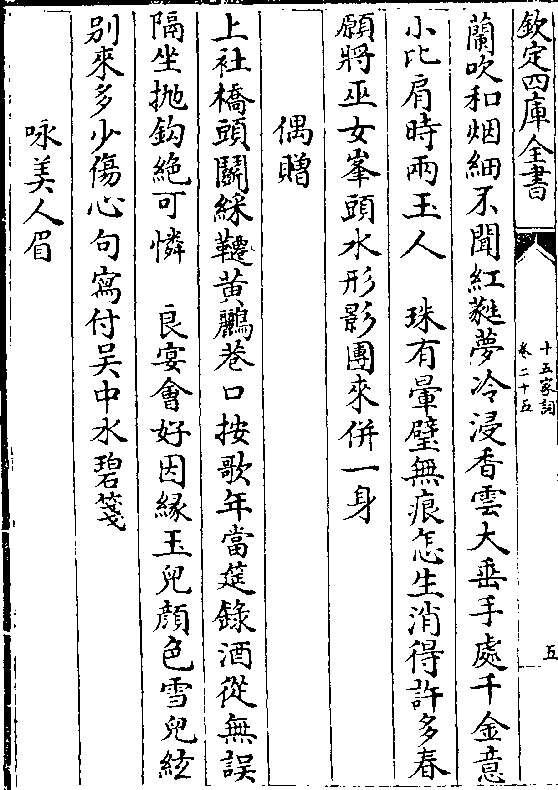 欽定四庫全書
十五家詞
卷二十五
五
蘭吹和烟細不聞紅蕤夢冷浸香雲大垂手處千金意
小比肩時兩玉人　珠有暈璧無痕怎生消得許多春
願將巫女峯頭水形影團來併一身
偶贈
上社橋頭鬭綵韆黄鸝巷口按歌年當筵錄酒從無誤
隔坐拋鈎絶可憐　良宴會好因緣玉兒顔色雪兒絃
别來多少傷心句寫付吴中水碧箋
咏美人眉